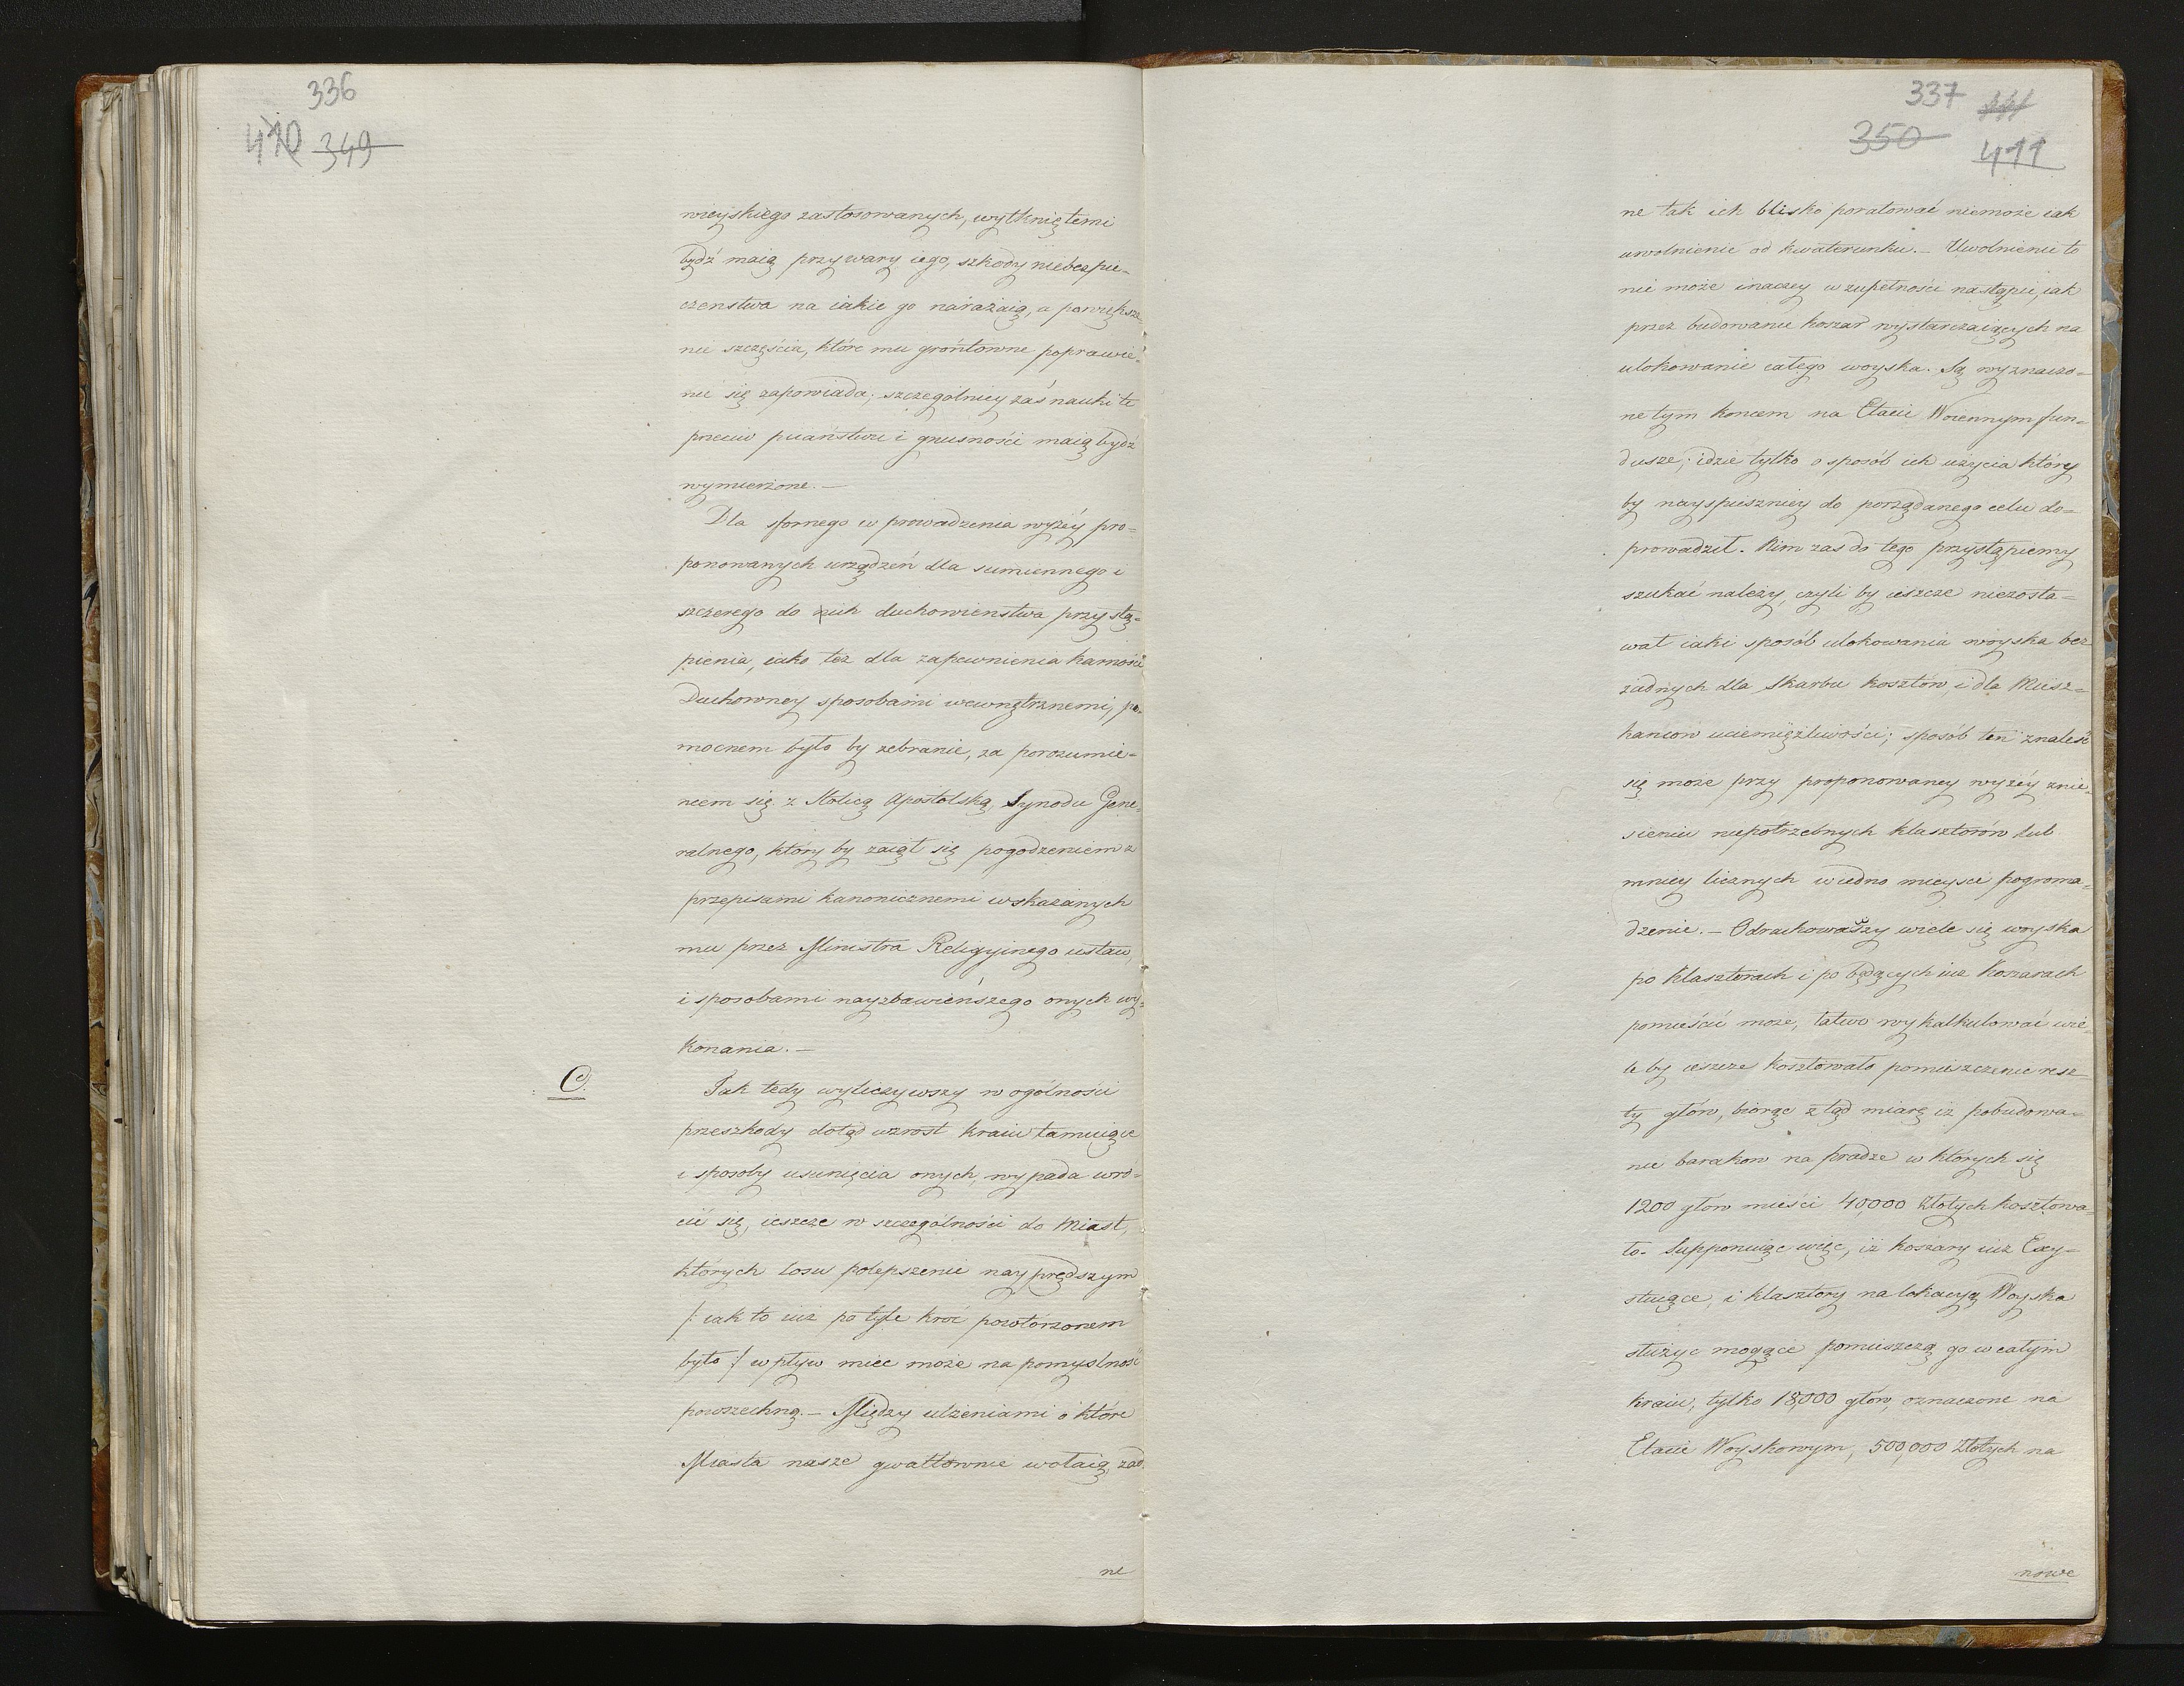 336
410 349
wieyskiego zastosowanych, wytkniętemi
bydź maią przywary iego, szkody niebezpie-
czenstwa na iakie go narażaią, a powiększe
nie szczęścia, które mu grońtowne poprawie-
nie się zapowiada; szczególniey zaś nauki te
przeciw piiaństwu i gnusności maią bydź
wymierzone. —
Dla sfornego w prowadzenia wyżéy pro-
ponowanych urządzeń dla sumiennego i
szczerego do nich duchowienstwa przystą-
pienia, iako też dla zapewnienia karności
Duchowney sposobami wewnętrznemi, po-
mocnem było by zebranie, za porozumie-
niem się z Stolicą Apostolską, Synodu Gene-
ralnego, który by zaiął się pogodzeniem z
przepisami kanonicznemi wskazanych
mu przez Ministra Religyinego ustaw,
i sposobami nayzbawieńszego onych wy-
konania. —
C.
Jak tedy wyliczywszy w ogólności
przeszkody dotąd wzrost kraiu tamuiące
i sposoby usunięcia onych, wypada wró-
cić się, ieszcze w szczególności do Miast,
których losu polepszenie nayprędszym
/: iak to iuż po tyle kroć powtórzonem
było :/ wpływ mieć może na pomyslność
powszechną. — Między ulżeniami o które
Miasta nasze gwałtownie wołaią, żad-
ne
337 411
350 411
ne tak ich blisko poratować niemoże iak
uwolnienie od kwaterunku. — Uwolnienie to
nie może inaczey w zupełności nastąpić, iak
przez budowanie koszar wystarczaiących na
ulokowanie całego woyska. Są wyznaczo-
ne tym koncem na Etacie Woiennym fun-
dusze; idzie tylko o sposób ich użycia który
by nayspieszniey do porządanego celu do-
prowadził. Nim zas do tego przystąpiemy
szukać należy, czyli by ieszcze niezosta-
wał iaki sposób ulokowania woyska bez
żadnych dla Skarbu kosztów, i dla Miesz-
kancow uciemiężliwości; sposób ten znaleść
się może przy proponowaney wyżéy znie-
sieniu niepotrzebnych klasztorów lub
mniey licznych w iedno mieysce pogroma-
dzenie. — Odrachowawszy wiele się woyska
po klasztorach i po będących iuż Koszarach
pomieścić może, łatwo wykalkulować wie-
le by ieszcze kosztowało pomieszczenie resz-
ty głów, biorąc ztąd miarę iż pobudowa-
nie barakow na pradze w których się
1200 głów mieści 40,000 Złotych kosztowa-
ło. Supponuiąc więc, iż koszary iuż Exy-
stuiące, i klasztory na lokacyą Woyska
służyć mogące pomieszczą go w całym
kraiu, tylko 18,000 głów, oznaczone na
Etacie Woyskowym, 500,000 Złotych na
nowe